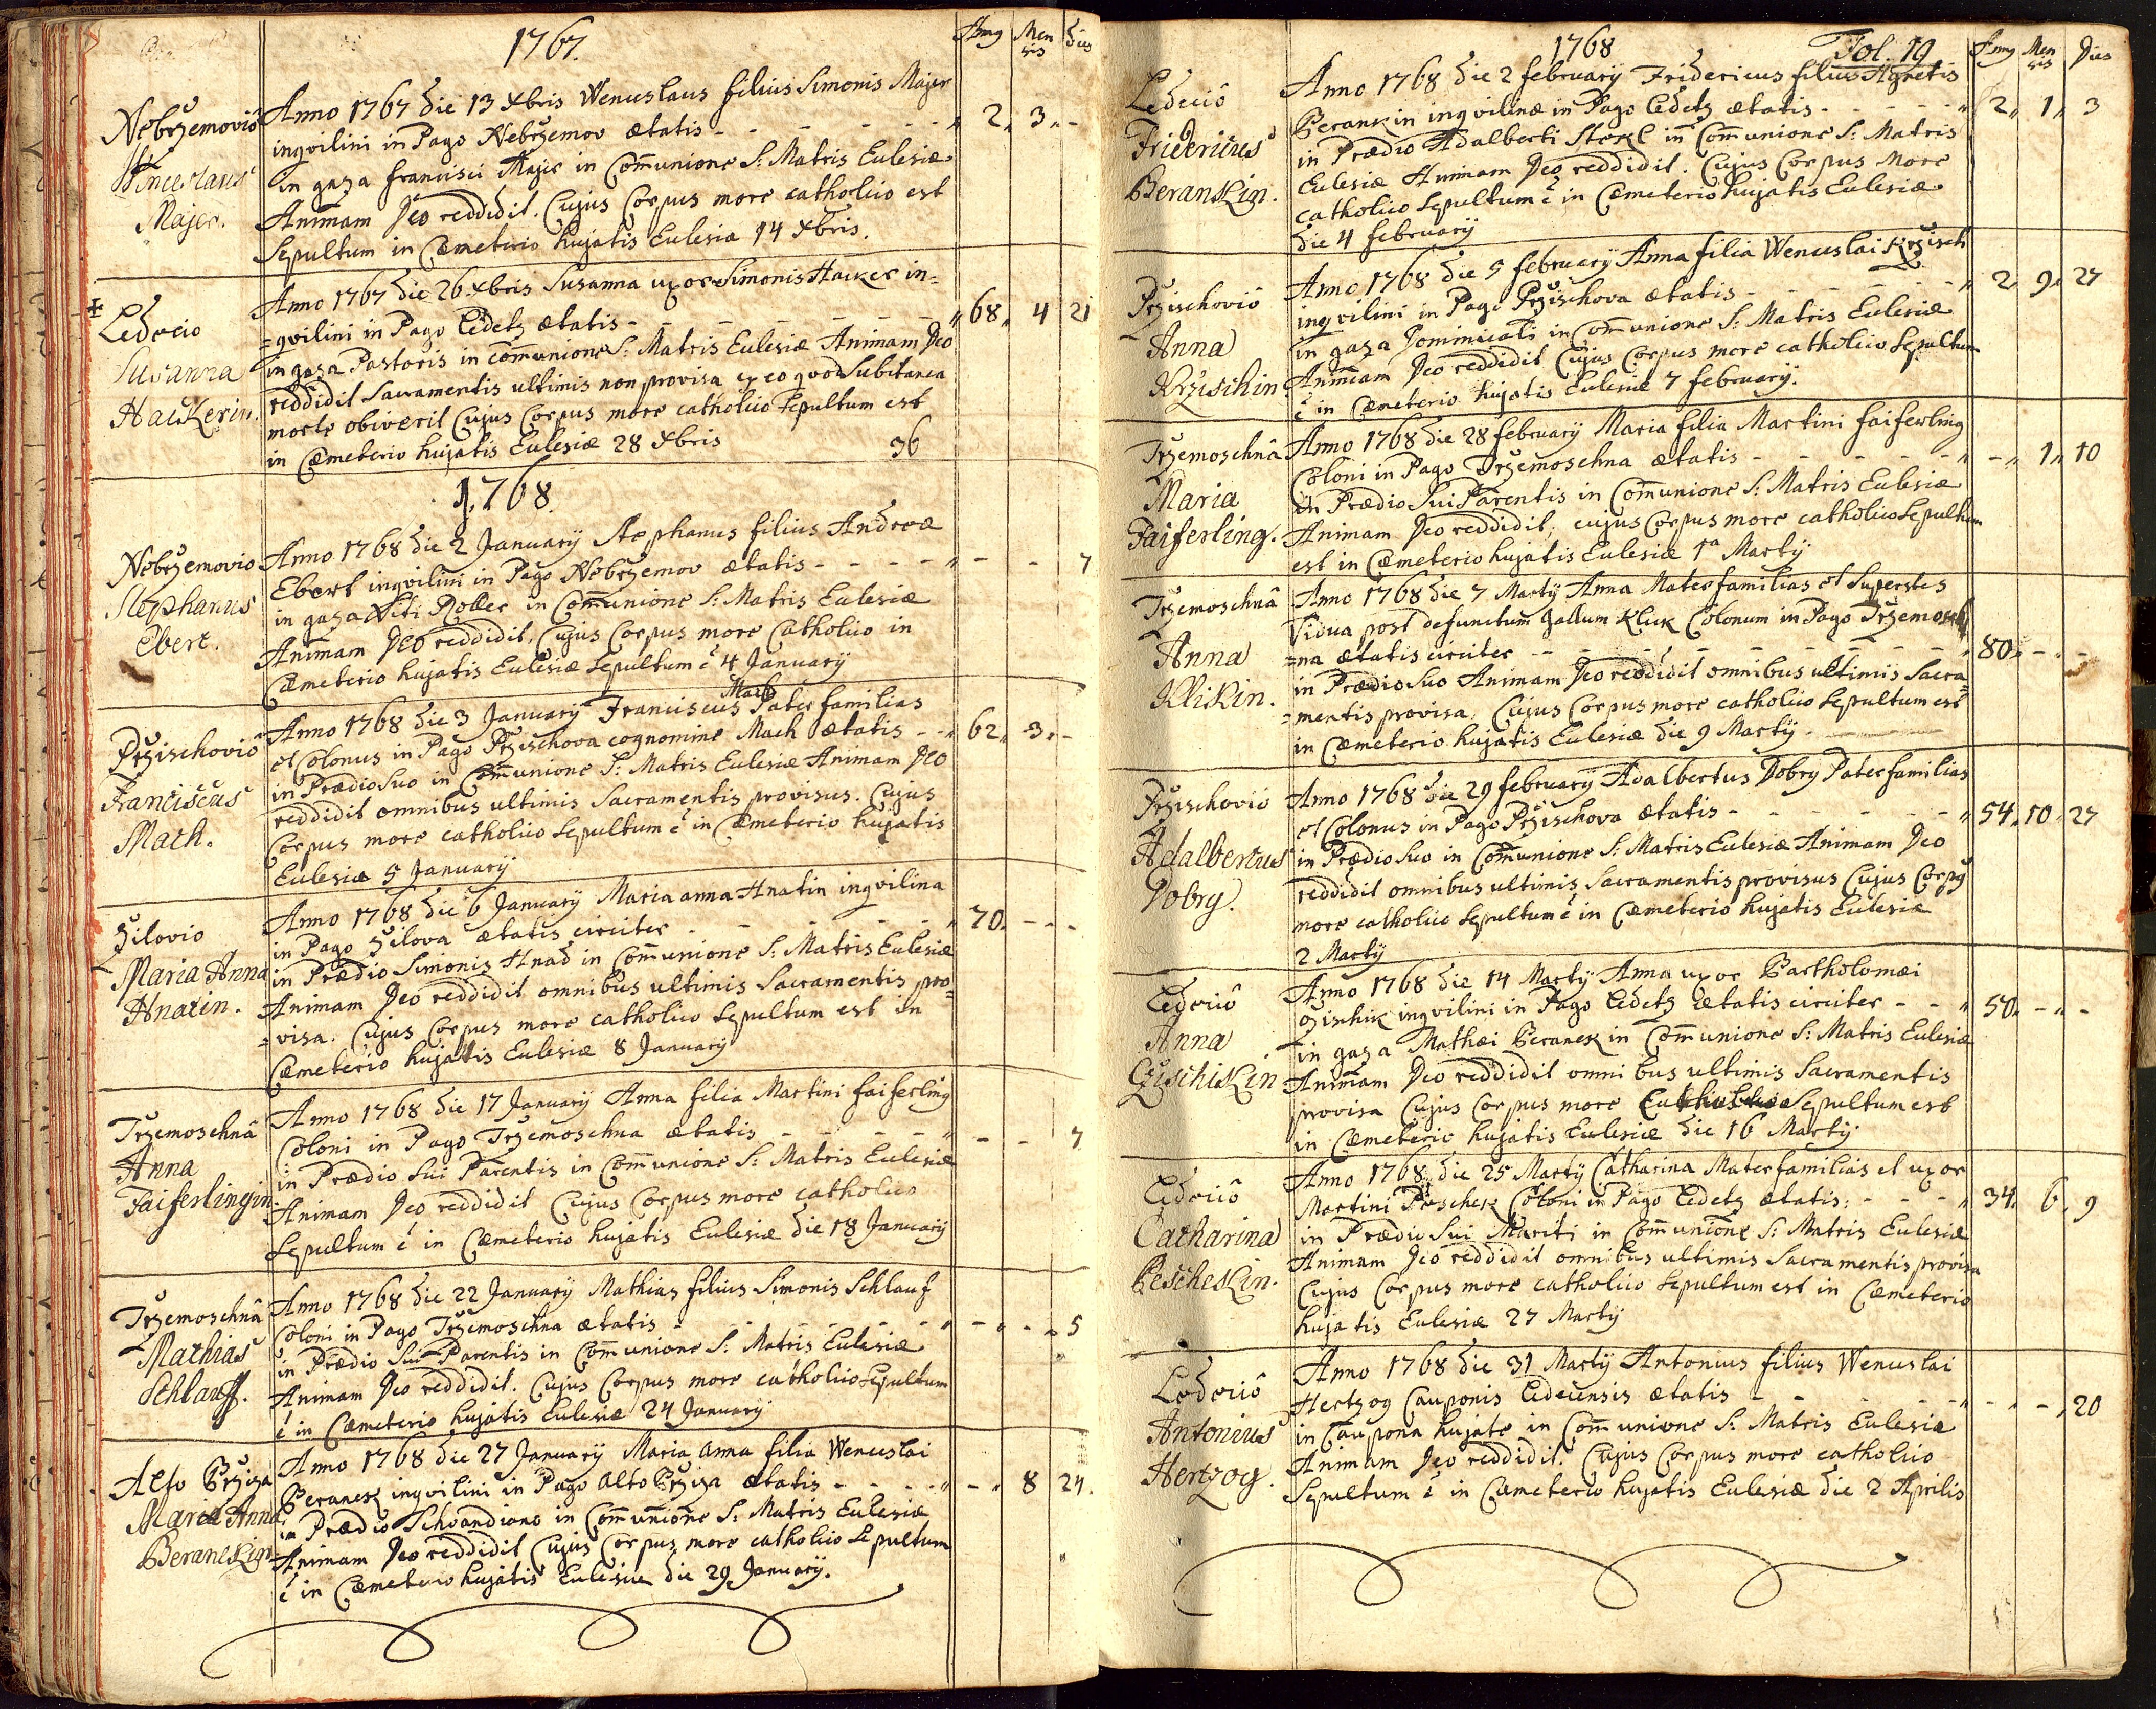 1767.
Annꝯ Mensis Dies
Nebrzemoviô
Winceslaus
Majer.
Anno 1767 die 13 Xbris Wenceslaus filius Simonis Majer
inqvilini in Pago Nebrzemov ætatis - - - - - - - " 2 " 3 " -
in gaza francisci Majer in Com̃unione S: Matris Eclesiæ
Animam Deo reddidit. Cujus Corpus more catholico est
Sepultum in Cæmeterio hujatis Eclesiæ 14 Xbris.
Ledecio
Susanna
Hackerin.
Anno 1767 die 26 Xbris Susanna uxor Simonis Hacker in=
=qvilini in Pago Ledetz ætatis - - - - - - - " 68 " 4 21
in gaza Pastoris in com̃unione S: Matris Eclesiæ Animam Deo
reddidit Sacramentis ultimis non provisa ex eo qvod Subitanea
morte obiverit Cujus Corpus more catholico Sepultum est
in Cæmeterio hujatis Eclesiæ 28 Xbris 36
1768.
Nebrzemovio
Stephanus
Ebert.
Anno 1768 die 2 January Stephanus filius Andreæ
Ebert inqvilini in Pago Nebrzemov ætatis - - - - " - - 7
in gaza Viti Roller in Com̃unione S: Matris Eclesiæ
Animam Deo reddidit, Cujus Corpus more Catholico in
Cæmeterio hujatis Eclesiæ Sepultum ẽ 4 January
Przischoviô
Franciscus
Mach.
Mach
Anno 1768 die 3 January Franciscus Pater familias
et Colonus in Pago Przischova cognomine Mach ætatis - - " 62 " 3 " -
in Prædio Suo in Com̃unione S: Matris Eclesiæ Animam Deo
reddidit omnibus ultimis Sacramentis provisus. Cujus
Corpus more catholico Sepultum ẽ in Cæmeterio hujatis
Eclesiæ 5 January
Zilovio
Maria Anna
Hnatin.
Anno 1768 die 6 January Maria anna Hnatin inqvilina
in Pago Zilova ætatis circiter - - - - - - " 70 - - -
in Prædio Simonis Hnad in Com̃unione S: Matris Eclesiæ
Animam Deo reddidit omnibus ultimis Sacramentis pro=
=visa. Cujus Corpus more catholico Sepultum est in
Cæmeterio hujatis Eclesiæ 8 January
Trzemoschnâ
Anna
Faiferlingin
Anno 1768 die 17 January Anna filia Martini faiferling
Coloni in Pago Trzemoschna ætatis - - - - - " - - 7
in Prædio Sui Parentis in Com̃unione S: Matris Eclesiæ
Animam Deo reddidit Cujus Corpus more catholico
Sepultum ẽ in Cæmeterio hujatis Eclesiæ die 18 January
Trzemoschnâ
Mathias
Schlauff.
Anno 1768 die 22 January Mathias filius Simonis Schlauf
Coloni in Pago Trzemoschna ætatis - - - - - - " - - 5
in Prædio Sui Parentis in Com̃unione S: Matris Eclesiæ
Animam Deo reddidit. Cujus Corpus more catholico Sepultum
ẽ in Cæmeterio hujatis Eclesiæ 24 January
Alto Brziza
Maria Anna
Beranekin
Anno 1768 die 27 January Maria anna filia Wenceslai
Beranek inqvilini in Pago alto Brziza ætatis - - - - " - " 8 24.
in Prædio Schvandiano in Com̃unione S: Matris Eclesiæ
Animam Deo reddidit Cujus Corpus more catholico Sepultum
ẽ in Cæmeterio hujatis Eclesiæ die 29 January.
1768 Fol. 19
Annꝯ Mensis Dies
Ledeciô
Fridericus
Beranskin.
Anno 1768 die 2 february Fridericus filius Agnetis
Berankin inqvilinæ in Pago Ledetz ætatis - - - - - " 2 " 1 " 3
in Prædio Adalberti Stekl in Com̃unione S: Matris
Eclesiæ Animam Deo reddidit. Cujus Corpus More
catholico Sepultum ẽ in Cæmeterio hujatis Eclesiæ
die 4 february
Przischoviô
Anna
Krzischin
Anno 1768 die 5 february Anna filia Wenceslai Krzisch
inqvilini in Pago Przischova ætatis - - - - - - " 2 " 9 " 27
in gaza Dominicali in Com̃unione S: Matris Eclesiæ
Animam Deo reddidit Cujus Corpus more catholico Sepultum
ẽ in Cæmeterio hujatis Eclesiæ 7 february.
Trzemoschnâ
Maria
Faiferling.
Anno 1768 die 28 february Maria filia Martini faiferling
Coloni in Pago Trzemoschna ætatis - - - - - - " - " 1 " 10
in Prædio Sui Parentis in Com̃unione S: Matris Eclesiæ
Animam Deo reddidit, cujus Corpus more catholico Sepultum
est in Cæmeterio hujatis Eclesiæ 1ᵃ Marty
Trzemoschnâ
Anna
Klikin.
Anno 1768 die 7 Marty Anna Mater familias et Superstes
Vidua post defunctum gallum Klik Colonum in Pago Trzemosch
=na ætatis circiter - - - - - - - - 80 " - " -
in Prædio Suo Animam Deo reddidit omnibus ultimis Sacra=
=mentis provisa. Cujus Corpus more catholico Sepultum est
in Cæmeterio hujatis Eclesiæ die 9 Marty
Przischoviô
Adalbertus
Dobry.
Anno 1768 die 29 february Adalbertus Dobry Pater familias
et Colonus in Pago Przischova ætatis - - - - - - " 54 " 10 " 27
in Prædio Suo in Com̃unione S: Matris Eclesiæ Animam Deo
reddidit omnibus ultimis Sacramentis provisus Cujus Corpꝯ
more catholico Sepultum ẽ in Cæmeterio hujatis Eclesiæ
2 Marty
Ledeciô
Anna
Czischikin
Anno 1768 die 14 Marty Anna uxor Bartholomæi
inqvilini in Pago Ledetz ætatis circiter - - " 50 " - " -
in gaza Mathæi Beranek in Com̃unione S: Matris Eclesiæ
Animam Deo reddidit omnibus ultimis Sacramentis
provisa Cujus Corpus more Sepultum est
in Cæmeterio hujatis Eclesiæ die 16 Marty
Ledeciô
Catharina
Pescheskin.
Anno 1768 die 25 Marty Catharina Mater familias et uxor
Martini Coloni in Pago Ledetz ætatis: - - - " 34 " 6 " 9
in Prædio Sui Mariti in Com̃unione S: Matris Eclesiæ
Animam Deo reddidit omnibus ultimis Sacramentis provisa
Cujus Corpus more catholico Sepultum est in Cæmeterio
hujatis Eclesiæ 27 Marty
Ledeciô
Antonius
Hertzog.
Anno 1768 die 31 Marty Antonius filius Wenceslai
Hertzog Cauponis Ledecensis ætatis - - - - - " - " - " 20
in Caupona hujate in Com̃unione S: Matris Eclesiæ
Animam Deo reddidit. Cujus Corpus more catholico
Sepultum ẽ in Cæmeterio hujatis Eclesiæ die 2 Aprilis